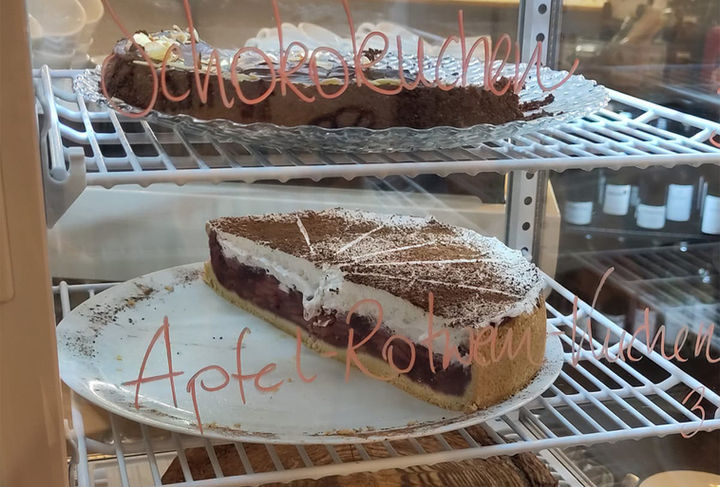 Schokokuchen
Apfel-Rotwein-Kuchen
3